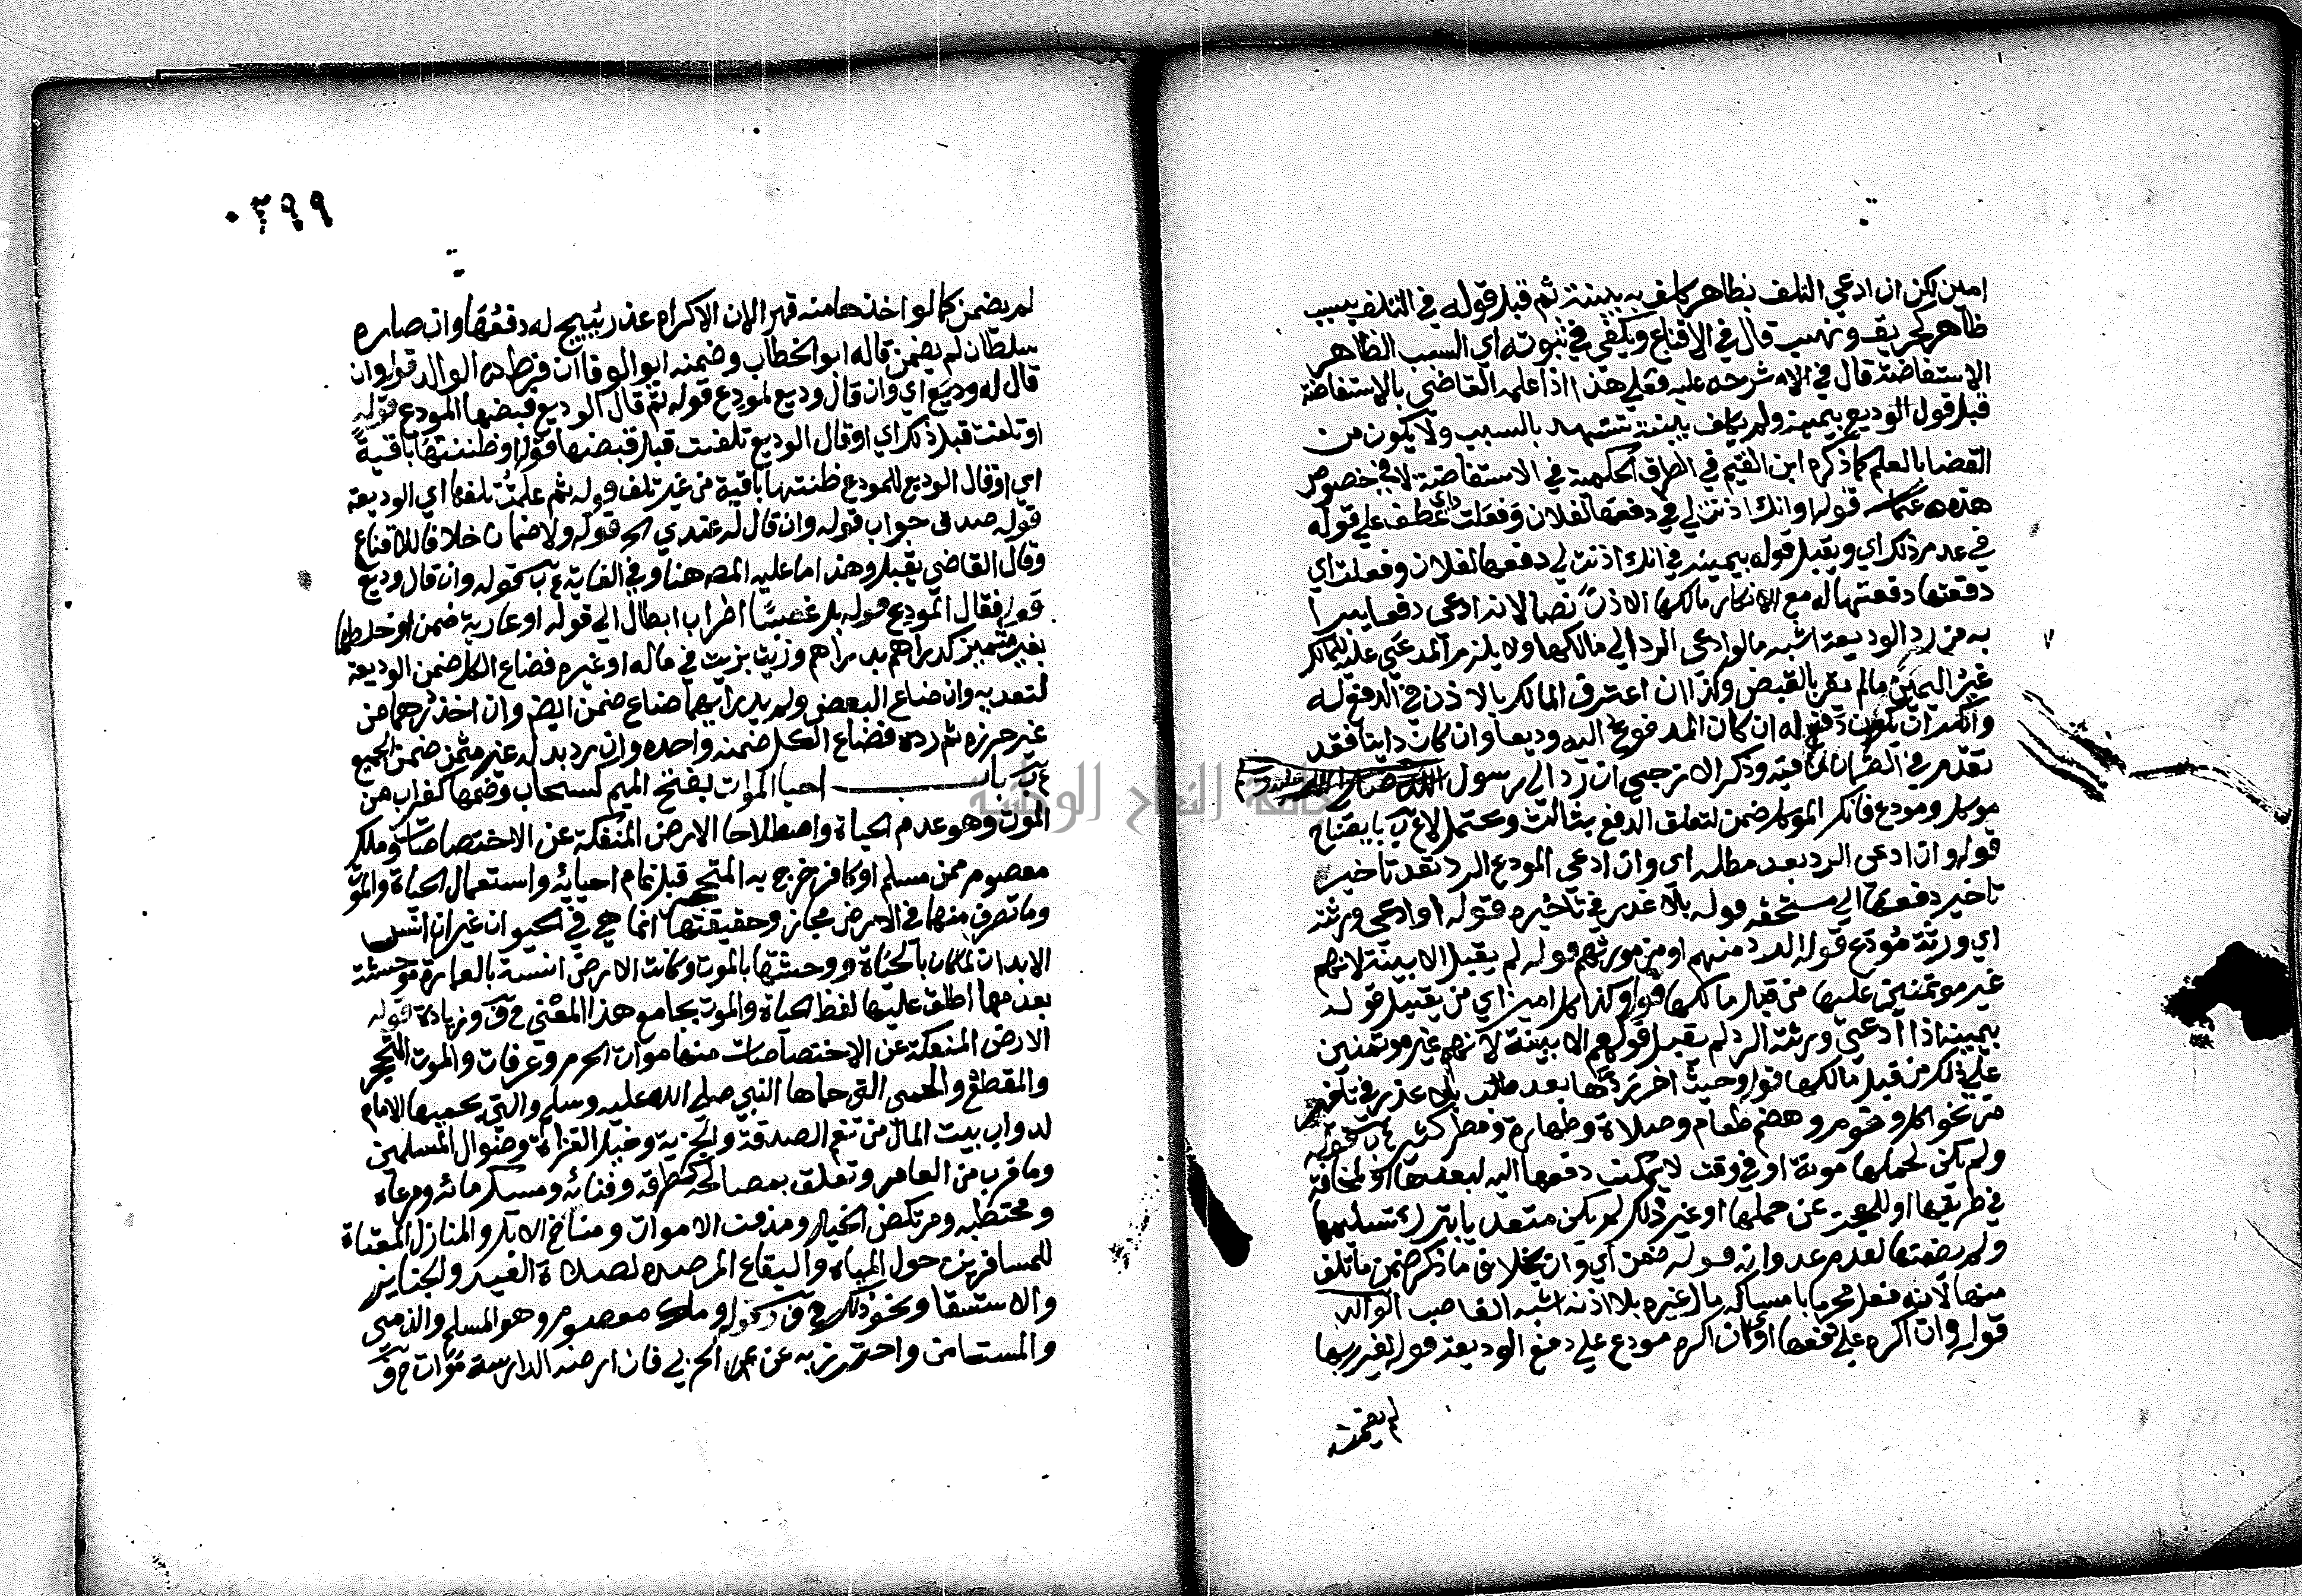 امين لكن ان ادعي التلف بظاهر كلف به ببينة ثم قبل قوله في التلف بسبب
ظاهر كحريق ونهب قال في الاقناع ويكفي في ثبوته اي السبب الظاهر
الاستفاضة قال في شرحه عليه فعلي هذا اذا علمه القاضي بالاستفاضة
قبل قول الوديع بيمينه ولم يكلف ببينة تشهد بالسبب ولا يكون من
القضا بالعلم كما ذكره ابن القيم في الطرق الحكمية في الاستفاضة لا في خصوص
هذه قوله وانك اذنت لي في دفعها لفلان وفعلت اي عطف علي قوله
في عدم ذلك اي ويقبل قوله بيمينه في انك اذنت لي دفعها لفلان وفعلت اي
دفعتها دفعتها له مع الانكار مالكها الاذن نصا لانه ادعى دفعا يبرا
به من رد الوديعة اشبه مالو ادعى الرد الي مالكها ولا يلزم المدعي عليه للمالك
غير اليمين مالم يقر بالقبض وكذا ان اعترف المالك بالاذن في الدفع له
وانكر ان يكون دفع له ان كان المدفوع اليه وديعا وان كان داينا فقد
تقدم في الضمان وذكر الازجي ان رد الي رسول
موكل ومودع فانكر الموكل ضمن لتعلق الدفع بثالث ويحتمل لا
قوله وان ادعى الرد بعد مطله اي وان ادعى المودع الرد بعد تاخير
تاخير دفعها الي مستحقه قوله بلا عذر في تاخيره قوله او ادعى ورثته
اي ورثة مودع قوله الرد منهم او من مورثهم قوله لم يقبل الا ببينة لانهم
غير موتمنين عليها من قبل مالكها قوله وكذا كل امين اي من يقبل قوله
بيمينه اذا ادعى ورثته الرد لم يقبل قولهم الا ببينة لانهم غير موتمنين
علي ذلك من قبل مالكها قوله وحيث اخر ردها بعد طلب بلا عذر في تاخير
من نحو اكل ونوم وهضم طعام وصلاة وطهارة ومطر كثير قوله
ولم يكن لحملها مونة او في وقت لا يمكنه دفعها اليه لبعدها او لمخافة
في طريقها او للعجز عن حملها او غير ذلك لم يكن متعديا بترك تسليمها
ولم يضمنها لعدم عدوانه قوله ضمن اي وان بخلاف ما ذكر ضمن ما تلف
منها لانه فعل محرما بامساكه مال غيره بلا اذنه اشبه الغاصب الوالد
قوله وان اكره علي دفعها اي كان اكره مودع علي دفع الوديعة قوله لغير ربها
لم يضمن
٠٣٩٩
لم يضمن كما لو اخذها منه قهرا لان الاكراه عذر يبيح له دفعها وان صاره
سلطان لم يضمن قاله ابو الخطاب وضمنه ابو الوفا ان فرط الوالد قوله وان
قال له وديع اي وان قال وديع لمودع قوله ثم قال الوديع قبضها المودع قوله
او تلفت قبل ذلك اي او قال الوديع تلفت قبل قبضها قوله او ظننتها باقية
اي او قال الوديع للمودع ظننتها باقية من غير تلف قوله ثم علمت تلفها اي الوديعة
قوله صدق جواب قوله وان قال له عندي الخ قوله ولا ضمان خلافا للاقناع
وقال القاضي يقبل وهذا ما عليه المص هنا وفي الغاية كقوله وان قال وديع
قوله فقال المودع قوله بل غصبا اضراب ابطال الي قوله او عارية ضمن او خلطها
بغير متميز كدراهم بدراهم وزيت بزيت في ماله او غيره فضاع الكل ضمن الوديعة
لتعديه وان ضاع البعض ولم يدر ايهما ضاع ضمن ايضا وان اخذ درهما من
غير حرزه ثم رده فضاع الكل ضمنه واحده وان رد بدله غير متميز ضمن الجميع
باب احيا الموات بفتح الميم كسحاب وضمها كغراب من
الموت وهو عدم الحياة واصطلاحا الارض المنفكة عن الاختصاصات وملك
معصوم من مسلم او كافر خرج به المتحجر قبل تمام احيائه واستعمال الحياة والموت
وما تصرف منهما في الارض مجاز وحقيقتها انما هي في الحيوان غير ان انس
الابدان لما كان بالحياة ووحشتها بالموت وكانت الارض انسة بالعمارة موحشة
بعدمها اطلق عليها لفظ الحياة والموت بجامع هذا المعني وزيادة قوله
الارض المنفكة عن الاختصاصات منها موات الحرم وعرفات والموت المتحجر
والمقطع والحمى التي حماها النبي صلى الله عليه وسلم والتي يحميها الامام
لدواب بيت المال من نعم الصدقة والجزية وخيل الغزاة وضوال المسلمين
وما قرب من العامر وتعلق بمصالحه كطرقه وفنائه ومسيل مائه ومرعاه
ومحتطبه ومرتكض الخيل ومدفن الاموات ومناخ الابل والمنازل المعتادة
للمسافرين حول المياه والبقاع المرصده لصلاة العيد والجنايز
والاستسقا ونحو ذلك قوله وملك معصوم وهو المسلم والذمي
والمستامن واحترز به عن الحربي فان ارضه الدارسة موات